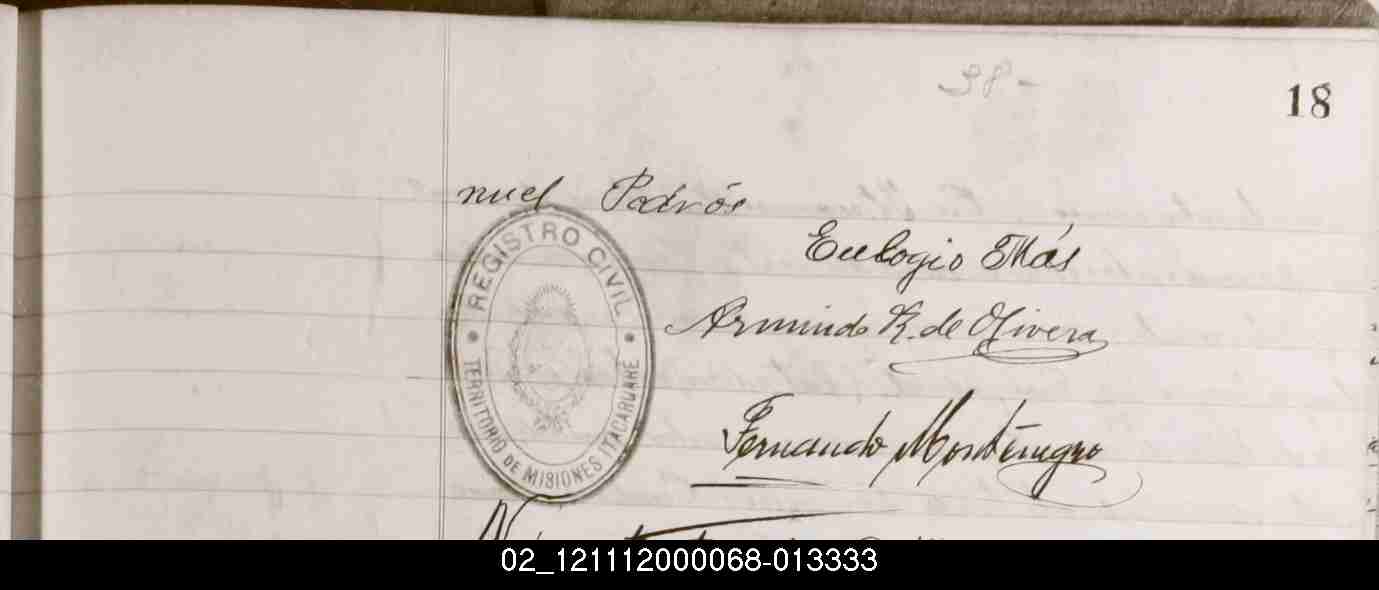 38-
18
nuel Pedrós
Eulogio Más
REGISTRO CIVIL
TERRITORIO DE MISIONES ITACARUARE
Armindo R. de Olivera
Fernando Montenegro
02_121112000068-013333